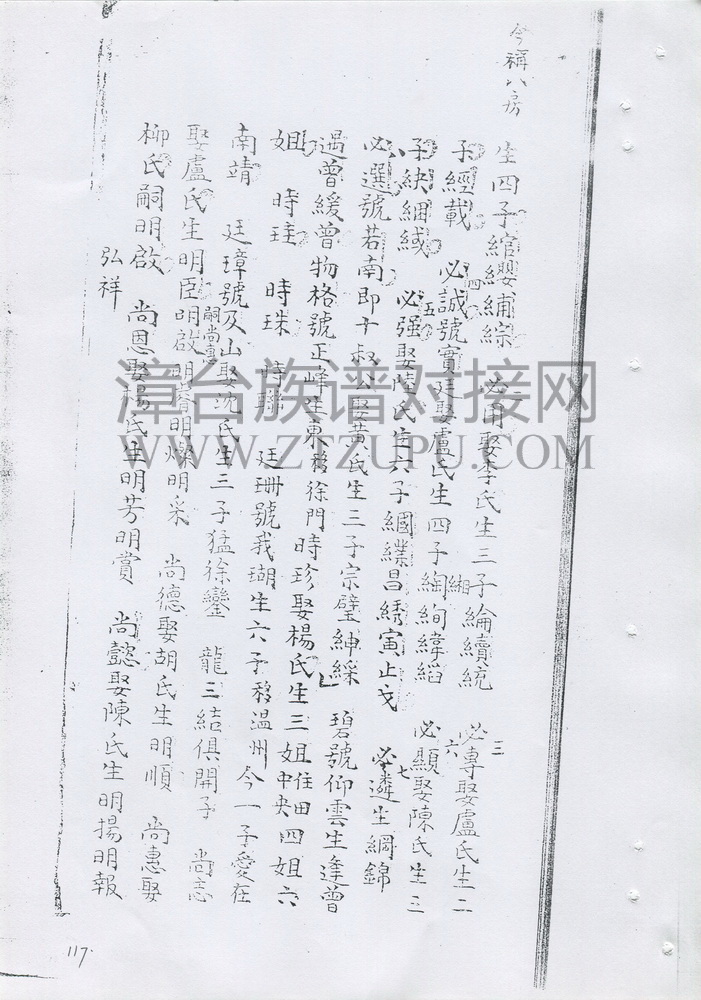 今稱八房
生四子綰纓緟綜 必用娶李氏生三子綸續統 三必專娶盧氏生二
子經載 四必誠號實廷娶盧氏生四子緗綯絢緯縚 六必顯娶陳氏生三
子紻綑緎 五必强娶陸氏生六子綱緤昌綉寅止戈 七必遴生綢錦
必選號若南即十叔公娶黃氏生三子宗璧紳綵 碧號仰雲生逢曾
遇曾緩曾物格號正峰生東移徐門 時珍娶楊氏生三姐住田中央四姐六
姐 時珪 時珠 時聯 廷珊號我瑚生六子移溫州今一子愛在
南靖 廷璋號及山娶沈氏生三子猛徐鑾 龍三結俱開子 尚志
娶盧氏生明臣明啟嗣尚惠明睿明燦明采 尚德娶胡氏生明順 尚惠娶
柳氏嗣明啟 尚恩娶楊氏生明芳明賞 尚懿娶陳氏生明揚明報
弘祥
漳台族谱对接网
WWW.ZTZUPU.COM
117.